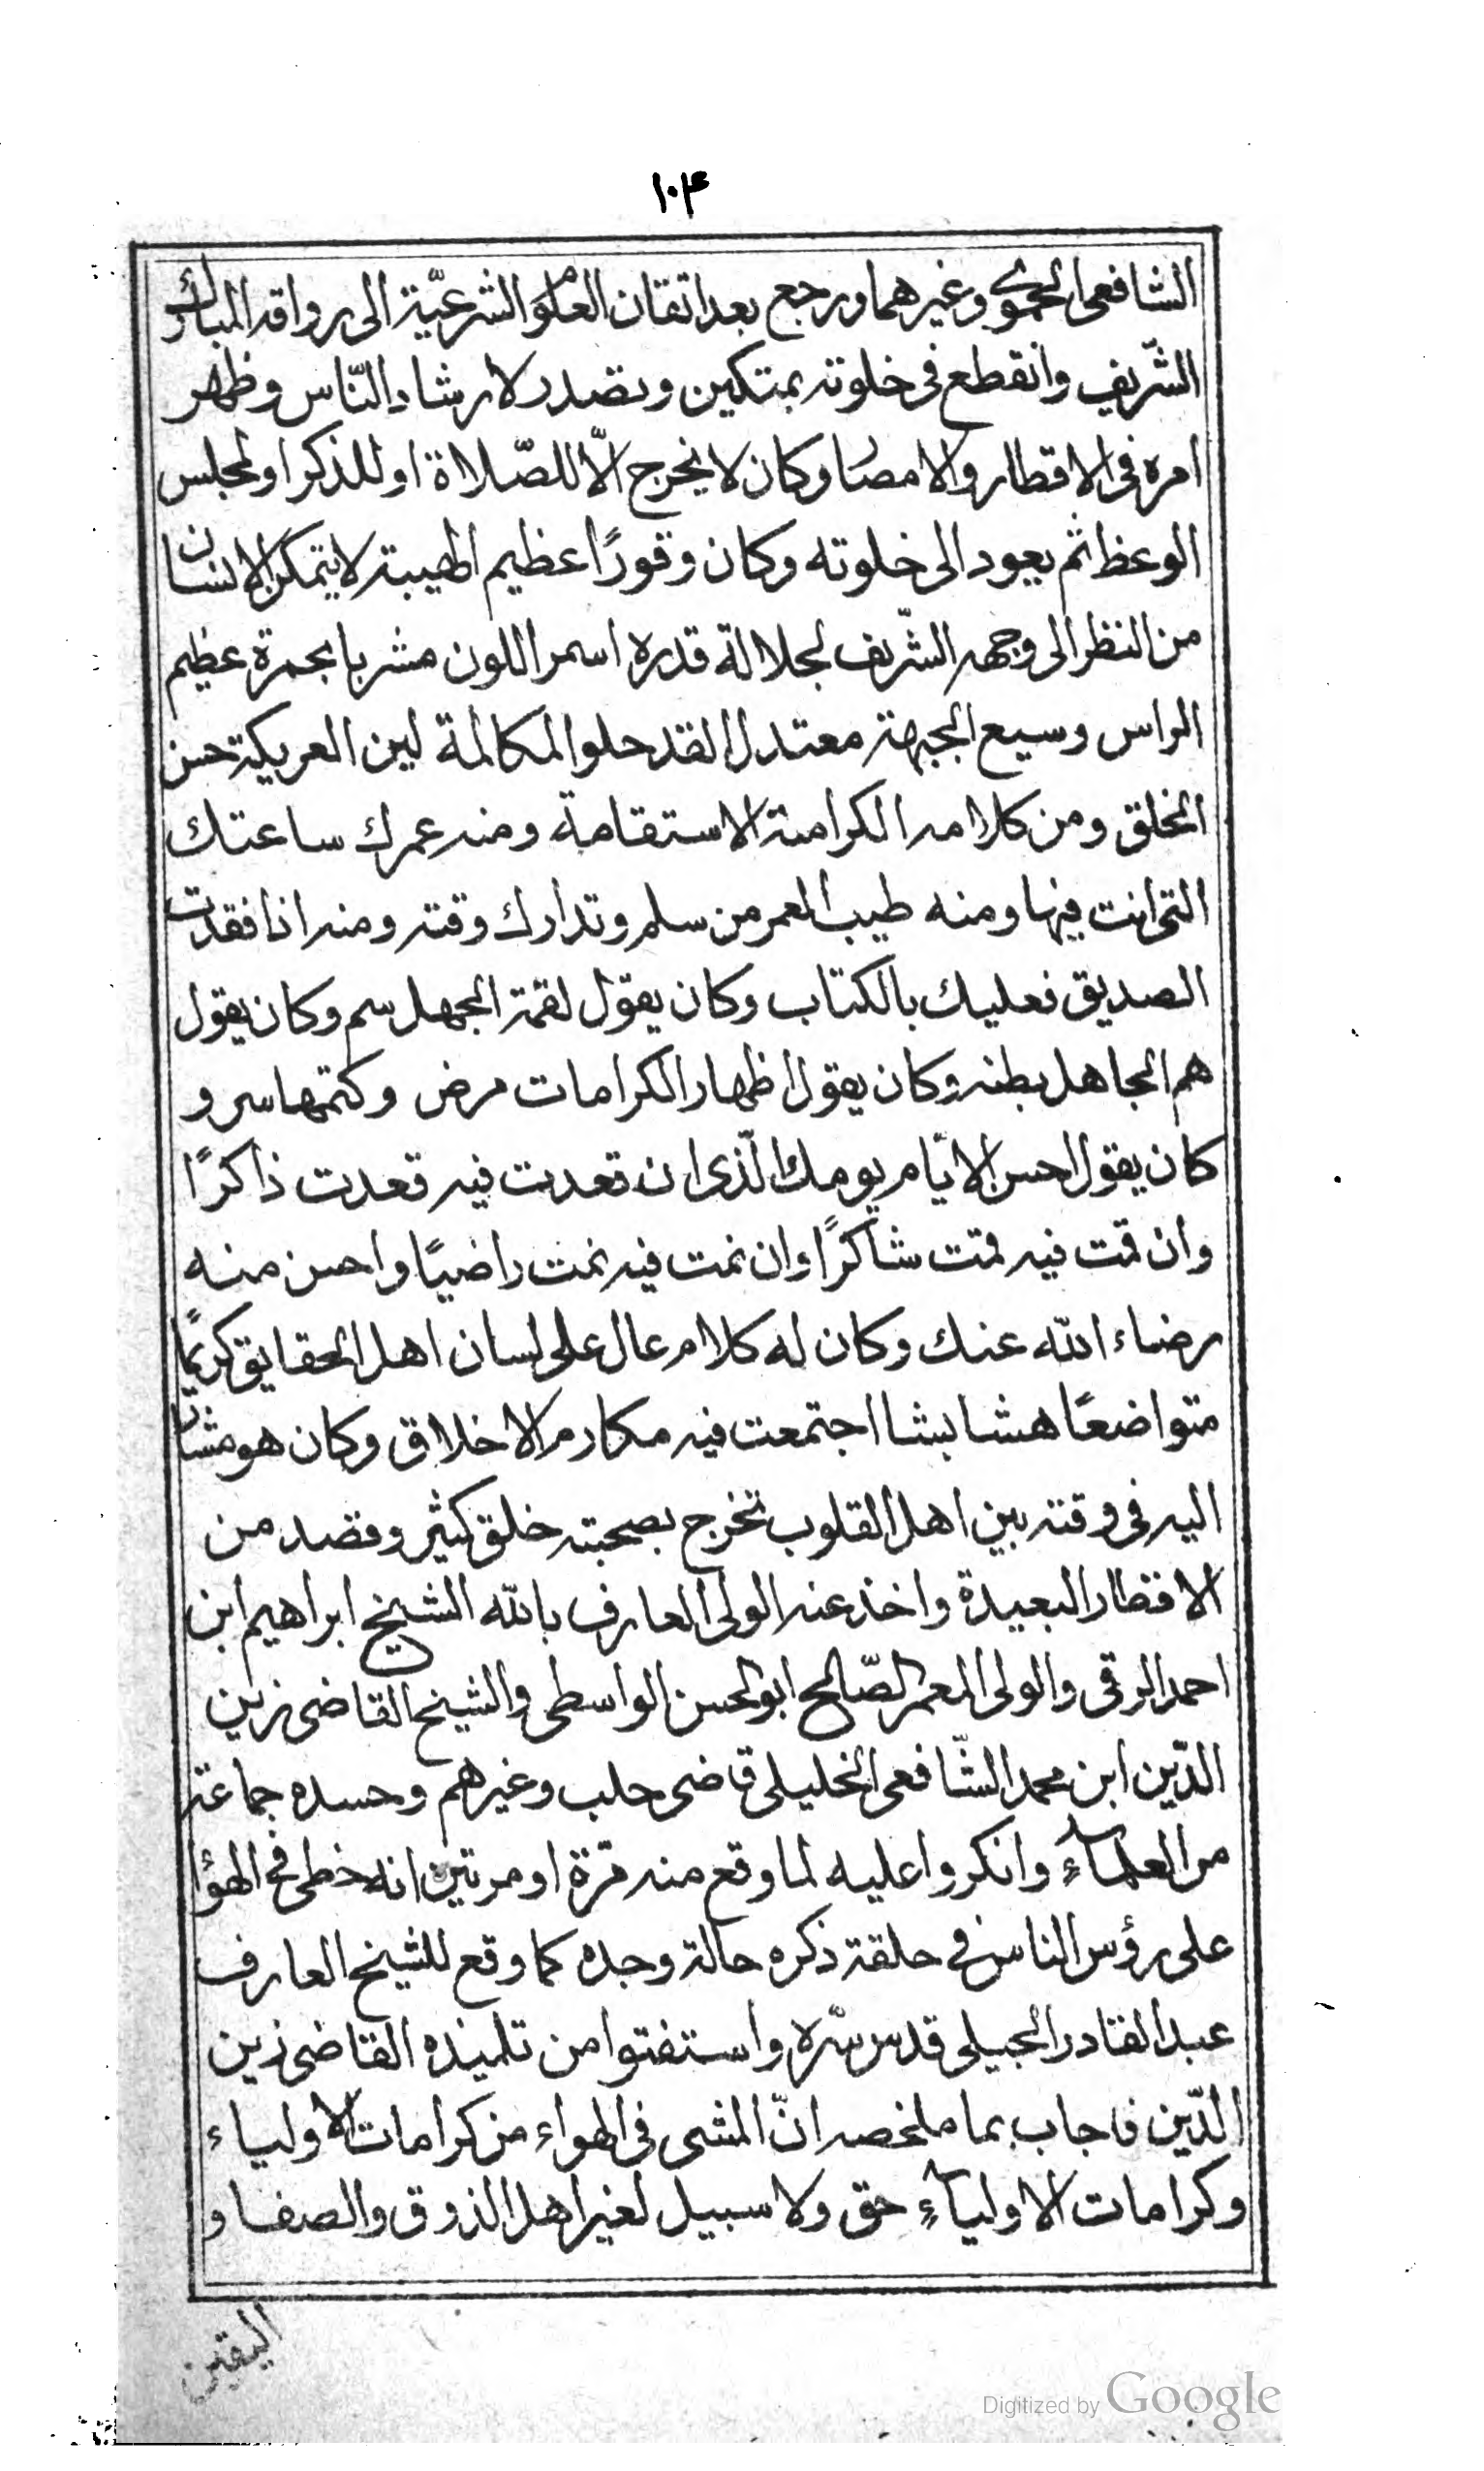 ١٠٤
الشافعى الحموى وغيرهما ورجع بعد اتقان العلوم الشرعيّة الى رواقه المبارك
الشّريف وانقطع فى خلوته بمتكين وتصدر لارشاد النّاس وظهر
امره فى الاقطار والامصار وكان لا يخرج الّا للصّلاة او للذكر او لمجلس
الوعظ ثم يعود الى خلوته وكان وقورًا عظيم الهيبة لا يتمكن الانسان
من النظر الى وجهه الشّريف لجلالة قدره اسمر اللون مشربا بحمرة عظيم
الراس وسيع الجبهة معتدل القد حلو المكالمة لين العريكة حسن
الخلق ومن كلامه الكرامة الاستقامة ومنه عمرك ساعتك
التى انت فيها ومنه طيب العمر من سلم وتدارك وقته ومنه اذا فقدت
الصديق فعليك بالكتاب وكان يقول لقمة الجهل سم وكان يقول
هم الجاهل بطنه وكان يقول اظهار الكرامات مرض وكتمها سر و
كان يقول احسن الايّام يومك الّذى ان قعدت فيه قعدت ذاكرًا
وان قمت فيه قمت شاكرًا وان نمت فيه نمت راضيًا واحسن منه
رضاء الله عنك وكان له كلام عال على لسان اهل الحقايق كريمًا
متواضعًا هشا بشا اجتمعت فيه مكارم الاخلاق وكان هو مشارًا
اليه فى وقته بين اهل القلوب تخرج بصحبته خلق كثير وقصد من
الاقطار البعيدة واخذ عنه الولى العارف بالله الشيخ ابراهيم ابن
احمد الرقى والولى المعمر الصّالح ابو الحسن الواسطى والشيخ القاضى زين
الدّين ابن محمد الشّافعى الخليلى قاضى حلب وغيرهم وحسده جماعة
من العلمآءِ وانكروا عليه لما وقع منه مرّة او مرتين انه خطى فى الهوآ
على رؤس الناس فى حلقة ذكره حالة وجده كما وقع للشيخ العارف
عبد القادر الجيلى قدس سّره واستفتوا من تلميذه القاضى زين
الدّين فاجاب بما ملخصه انّ المشى فى الهواء من كرامات الاولياء
وكرامات الاوليآءِ حق ولا سبيل لغير اهل الذوق والصفا و
اليقين
Digitized by Google